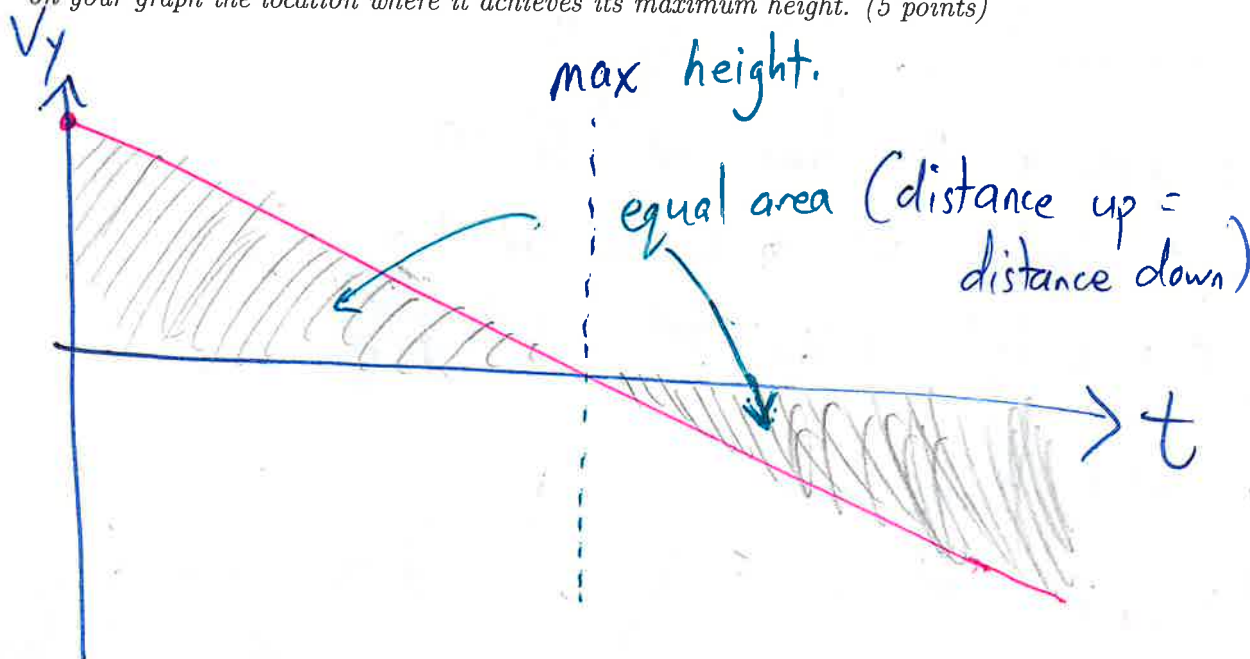 on your graph the location where it achieves its maximum height. (5 points)
Vy
max height.
equal area (distance up =
distance down)
t